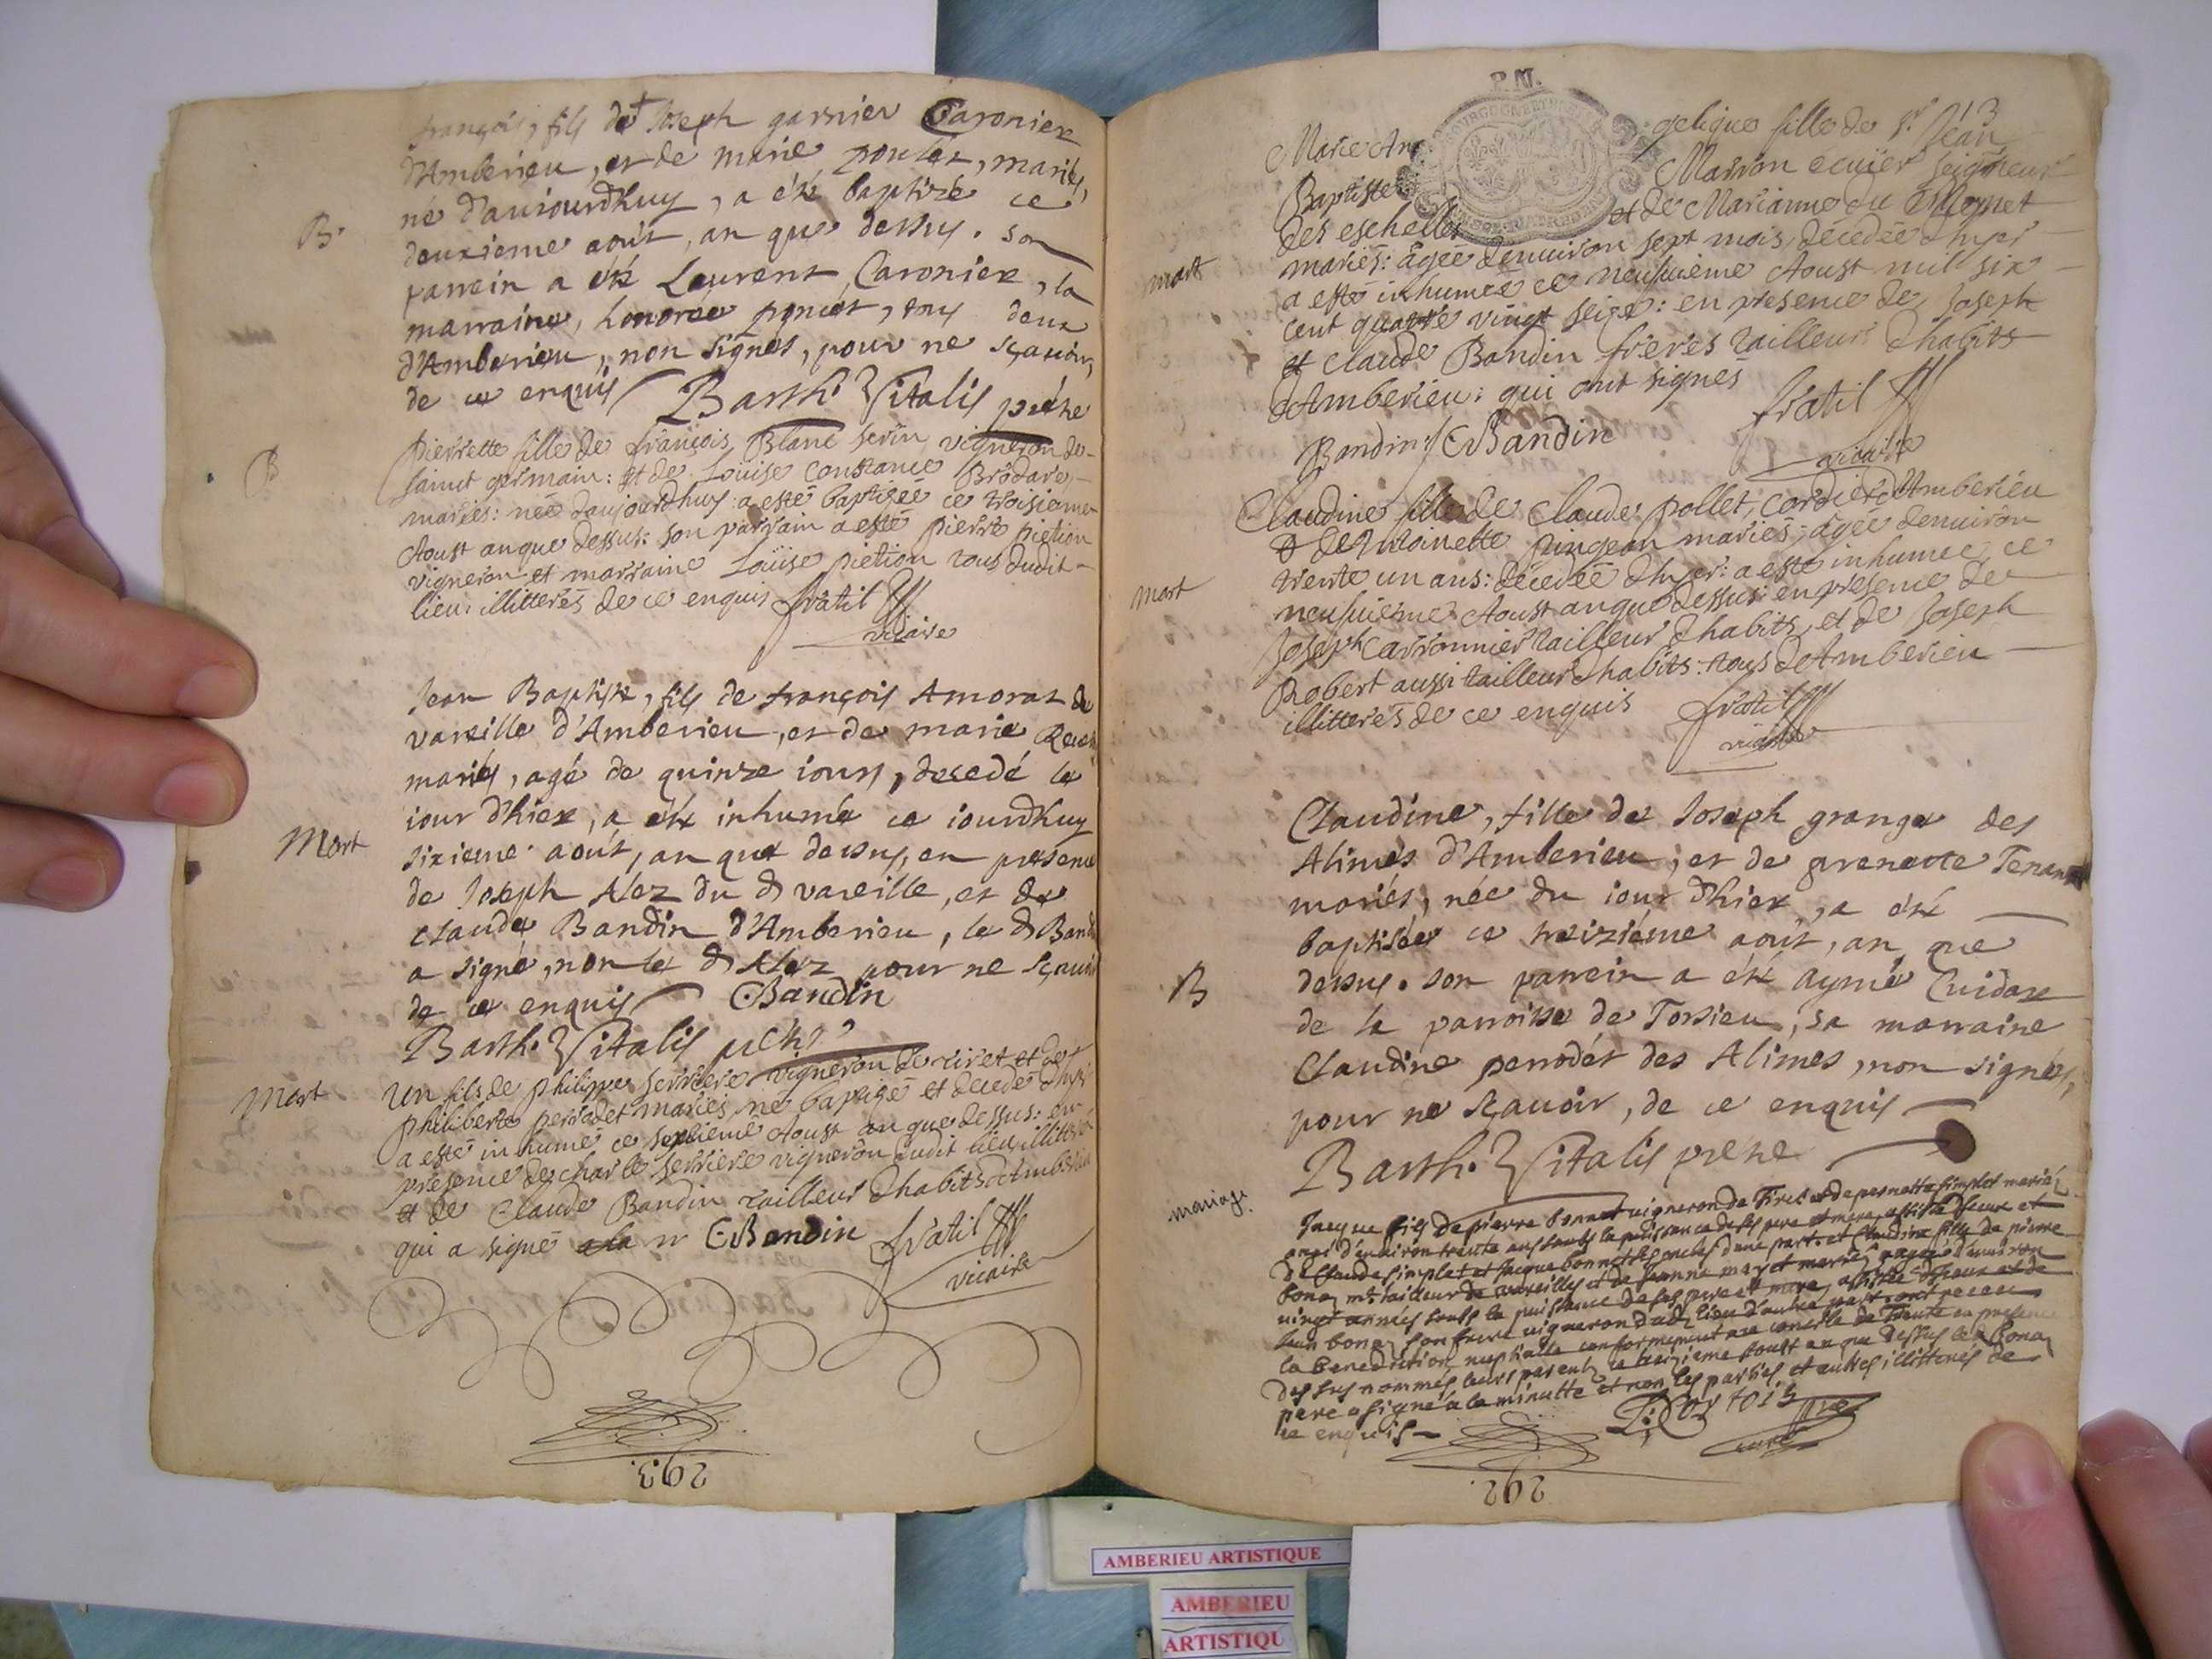 françois, fils de Joseph garnier Caronier
d'Amberieu, et de marie poncet, mariés,
né d'auiourdhuy, a été baptizé ce
B.
deuxieme août, an que dessus. son
parrein a été Laurent Caronier, la
marraine, honorée poncet, tous deux
d'Amberieu, non signés, pour ne sçauoir,
de ce enquis Barth. Vitalis prêtre
pierrette fille de françois Blanc serin vigneron de
B
sainct germain: et de Loüise Constance Brodare
mariés: née daujourdhuy: a esté baptizée ce troisieme
Aoust an que dessus: son parrain a esté pierre pietion
vigneron et marraine Loüise pietion tous dudit
lieu: illitterés de ce enquis fratil
vicaire
Jean Baptiste, fils de françois Amorat de
vareille d'Amberieu, et de marie
mariés, agé de quinze iours, decedé le
iour d'hier, a été inhumé ce iourdhuy
Mort
sixieme août, an que dessus, en presence
de Joseph Alez du d vareille, et de
claude Bandin d'Amberieu, le d Bandin
a signé, non le d Alez pour ne sçauoir
de ce enquis CBandin
Barth. Vitalis prêtre
Mort
Un fils de philippe serriere vigneron de tiret et de
philiberte perradet mariés né, baptizé et decedé d'hyer
a esté inhumé ce septieme Aoust an que dessus: en
presence de charle serriere vigneron dudit lieu illitteré
et de Claude Bandin tailleur d'habits d'Amberieu
qui a signé a la m CBandin fratil
vicaire
293.
P.M.
213
Marie Angelique fille de sr Jéan
Baptiste Marron écuier seigneur
des eschelles et de Marianne du
mort
mariés: âgée denuiron sept mois, décedée d'hyer
a esté inhumée ce neufuième Aoust mil six
cent quatre vingt seize: en presence de Joseph
et claude Bandin freres tailleurs d'habits
d'Amberieu: qui ont signés
Bandin CBandin fratil
vicaire
Claudine fille de Claude pollet, cordier d'Amberieu
et de Antoinette pungeon mariés; âgée denuiron
trente un ans: décedée d'hyer: a esté inhumee ce
mort
neufuième Aoust an que dessus: en presence de
Joseph Carronnier tailleur d'habits, et de Joseph
Robert aussi tailleur d'habits: tous d'Amberieu
illitterés de ce enquis fratil
vicaire
Claudine, fille de Joseph grange des
Alimes d'Amberieu, et de prenette Tenand
mariés, née du iour d'hier, a été
baptisée ce treizième août, an que
B
dessus. son parrein a été aymé Cuidare
de la parroisse de Torsieu, sa marraine
Claudine perrodet des Alimes, non signés,
pour ne sçauoir, de ce enquis
Barth. Vitalis prêtre
mariage
Jacque fils de pierre bonnet uigneron de Tiret et de pernette simplet mariéz
agé d'enuiron trente ans soubs la puissance de ses pere et mere assisté d'iceux et
de Claude simplet et Jacque bonnet ses oncles d'une part. et Claudine fille de pierre
bonaz mre tailleur de vareilles et de Jeanne maret mariéz agée d'enuiron
uingt années soubs la puissance de ses pere et mere, assistée d'iceux et de
bonaz son frere uigneron dudt lieu d'autre part. ont receu
la benediction nuptialle conformement au concile de Trente en presence
des sus nommés leurs parents ce treizieme aoust an que dessus led bonaz
pere a signé a la minutte et non les parties et autres illitterés de
ce enquis
curé
292.
AMBERIEU ARTISTIQUE
AMBERIEU
ARTISTIQU